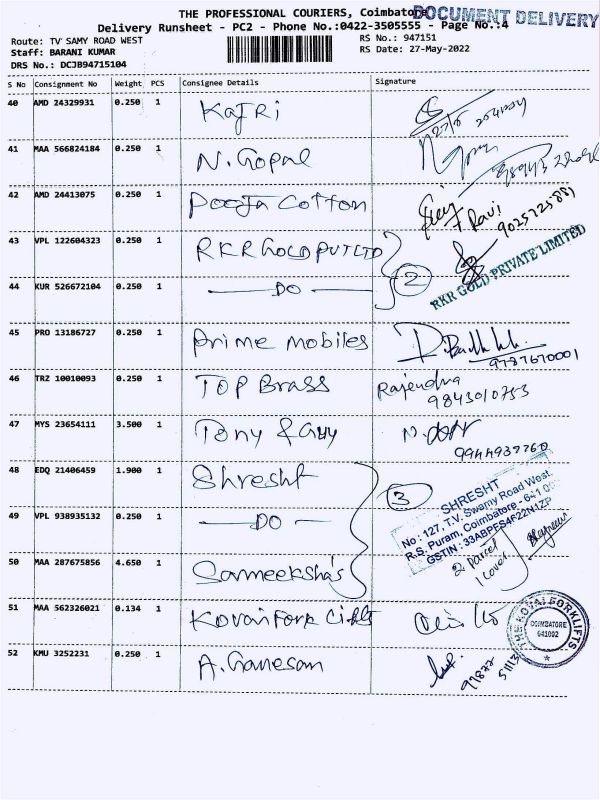 THE PROFESSIONAL COURIERS, Coimbatore
DOCUMENT DELIVERY
Delivery Runsheet - PC2 - Phone No.:0422-3505555 - Page No.:4
Route: TV SAMY ROAD WEST
RS No.: 947151
Staff: BARANI KUMAR
RS Date: 27-May-2022
DRS No.: DCJB94715104
S No Consignment No Weight PCS Consignee Details Signature
40 AMD 24329931 0.250 1 Kafri
27/5
41 MAA 566824184 0.250 1 N. Gopal
42 AMD 24413075 0.250 1 Pooja Cotton
Ravi
9025725881
43 VPL 122604323 0.250 1 RKR GOLD PVT LTD
2
RKR GOLD PRIVATE LIMITED
44 KUR 526672104 0.250 1 DO
45 PRO 13186727 0.250 1 Prime mobiles
9787670001
46 TRZ 10010093 0.250 1 TOP Brass Rajendra
9843010753
47 MYS 23654111 3.500 1 Tony & Guy
9944937760
48 EDQ 21406459 1.900 1 Shresht
3
SHRESHT
No : 127, T.V. Swamy Road West
R.S. Puram, Coimbatore - 641 0
GSTIN : 33ABPFS4F22N1ZP
49 VPL 938935132 0.250 1 DO
2 Parcel
1 Cover
50 MAA 287675856 4.650 1 Sameeksha's
51 MAA 562326021 0.134 1 Kovai Fork Lift
THE KOVAI FORKLIFTS
COIMBATORE
641002
52 KMU 3252231 0.250 1 A. Ganesan
97877
51113